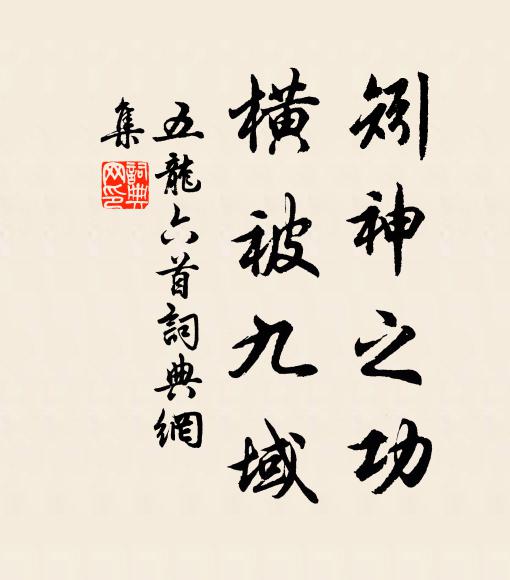 矧神之功
橫被九域
五龍六首詞典網
集
詞典
网印